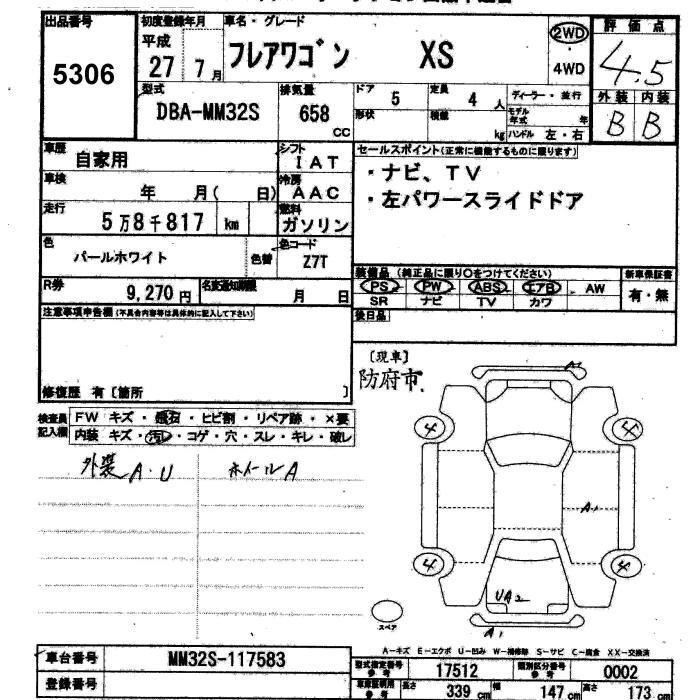 出品番号
5306
初度登録年月 車名・グレード
平成
27 7月
フレアワゴン XS
2WD
4WD
評価点
4.5
外装 内装
B B
型式
DBA-MM32S
排気量
658
CC
ドア 5 定員 4 人 ディーラー・並行
形状 積載 kg
モデル年式 年
ハンドル 左・右
車歴
自家用
シフト
IAT
車検
年 月( 日)
冷房
AAC
走行
5万8千817 km
燃料
ガソリン
色
パールホワイト
色替
色コード
Z7T
R券
9,270円
名変通知期限
月 日
セールスポイント(正常に機能するものに限ります)
・ナビ、TV
・左パワースライドドア
装備品(純正品に限り○をつけてください)
PS PW ABS エアB AW
SR ナビ TV カワ
新車保証書
有・無
後日品
注意事項申告欄(不具合内容等は具体的に記入して下さい)
修復歴 有〔箇所 〕
[現車]
防府市
検査員
記入欄
FW キズ・飛石・ヒビ割・リペア跡・×要
内装 キズ・汚れ・コゲ・穴・スレ・キレ・破レ
外装 A・U
ホイールA
A1
4
4
A1
4
4
UA2
スペア
A1
A−キズ E−エクボ U−凹み W−補修跡 S−サビ C−腐食 XX−交換済
車台番号
MM32S-117583
登録番号
型式指定番号
参考
17512
類別区分番号
参考
0002
長さ 339 cm 幅 147 cm 高さ 173 cm